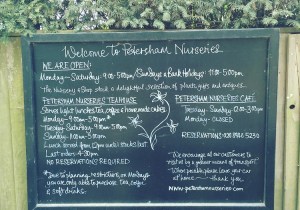 Welcome to Petersham Nurseries
WE ARE OPEN:
Monday - Saturday: 9:00 - 5:00pm / Sundays & Bank Holidays: 11:00 - 5:00pm
The nursery & shop stock a delightful selection of plants, gifts and antiques.
PETERSHAM NURSERIES TEAHOUSE
Serves light lunches, tea, coffee & homemade cakes
Monday - 9:00am - 5:00pm*
Tuesday - Saturday - 9:00am - 5:00pm
Sunday - 11:00 - 5:00pm
Lunch served from 12pm until stocks last
Last orders - 4:30pm
NO RESERVATIONS REQUIRED
*Due to planning restriction, on Mondays
you are only able to purchase tea, coffee
& soft drinks.
PETERSHAM NURSERIES CAFÉ
Tuesday - Sunday: 12:00 - 3:00pm
Monday: CLOSED
RESERVATIONS: 020 8940 5230
"We encourage all our customers to
travel by a greener means of transport.
Where possible, please leave your car
at home - thank you.
www.petershamnurseries.com